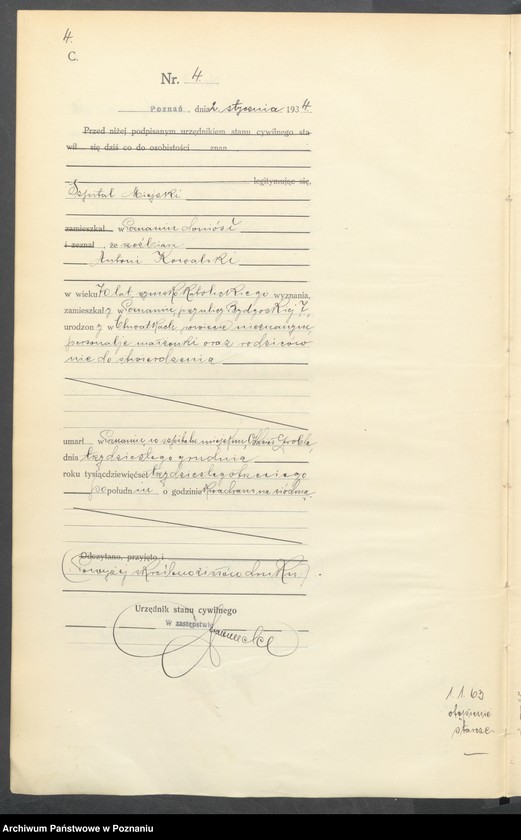 4.
C.
Nr. 4.
Poznań, dnia 2 stycznia 1934.
Przed niżej podpisanym urzędnikiem stanu cywilnego sta-
wił się dziś co do osobistości znan
legitymując się,
Szpital Miejski
zamieszkał w Poznaniu doniósł
i zeznał, że
Antoni Kowalski
w wieku 70 lat, rzymsko katolickiego wyznania,
zamieszkały w Poznaniu, przy ulicy Bydgoskiej 7,
urodzony w powiecie nieznanym
personalje małżonki oraz rodziców
nie do stwierdzenia
umarł w Poznaniu, w szpitalu miejskim,
dnia trzydziestego grudnia
roku tysiącdziewięćset trzydziestego trzeciego
po południu o godzinie siódmej.
Odczytano, przyjęto i
(Powyżej skreślono druku)
Urzędnik stanu cywilnego
W zastępstwie
1 1. 63
otępienie
starcze
Archiwum Państwowe w Poznaniu